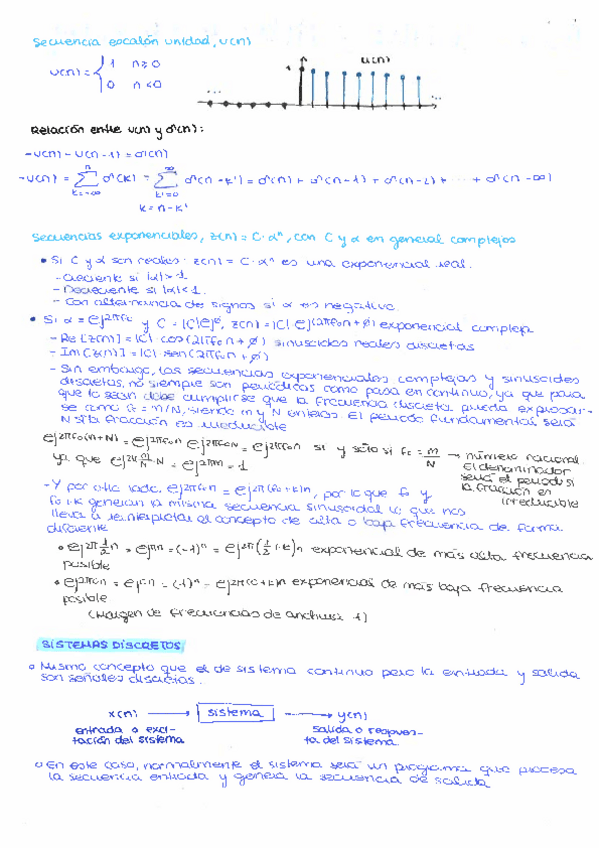 Secuencia escalón unidad, u(n)
u(n) = { 1 n ≥ 0
0 n < 0
u(n)
Relación entre u(n) y δ(n):
- u(n) - u(n-1) = δ(n)
- u(n) = Σ δ(k) = Σ δ(n-k') = δ(n) + δ(n-1) + δ(n-2) + ... + δ(n-∞)
k=-∞ k'=0
k = n-k'
Secuencias exponenciales, z(n) = C·αⁿ, con C y α en general complejos
• Si C y α son reales: z(n) = C·αⁿ es una exponencial real.
- Creciente si |α| > 1
- Decreciente si |α| < 1.
- Con alternancia de signos si α es negativo.
• Si α = e^j2πf₀ y C = |C|e^jø, z(n) = |C| e^j(2πf₀n + ø) exponencial compleja
- Re[z(n)] = |C| cos(2πf₀n + ø) sinusoides reales discretas
- Im(z(n)) = |C| sen(2πf₀n + ø)
- Sin embargo, las secuencias exponenciales complejas y sinusoides
discretas, no siempre son periódicas como pasa en continuo, ya que para
que lo sean debe cumplirse que la frecuencia discreta pueda expresar-
se como f₀ = m/N, siendo m y N enteros. El periodo fundamental, será
N si la fracción es irreducible
e^j2πf₀(n+N) = e^j2πf₀n · e^j2πf₀N = e^j2πf₀n si y sólo si f₀ = m/N → número racional
ya que e^j2π(m/N)·N = e^j2πm = 1
El denominador
será el periodo si
la fracción es
irreducible
- Y por otro lado, e^j2πf₀n = e^j2π(f₀+k)n, por lo que f₀ y
f₀+k generan la misma secuencia sinusoidal lo que nos
lleva a reinterpretar el concepto de alta o baja frecuencia de forma
diferente
• e^j2π(1/2)n = e^jπn = (-1)ⁿ = e^j2π(1/2+k)n exponencial de más alta frecuencia
posible
• e^j2π0n = e^j0n = (1)ⁿ = e^j2π(0+k)n exponencial de más baja frecuencia
posible
(Margen de frecuencias de anchura 1)
SISTEMAS DISCRETOS
• Mismo concepto que el de sistema continuo pero la entrada y salida
son señales discretas.
x(n) → sistema → y(n)
entrada o exci-
tación del sistema
salida o respues-
ta del sistema
• En este caso, normalmente el sistema será un programa que procesa
la secuencia entrada y genera la secuencia de salida